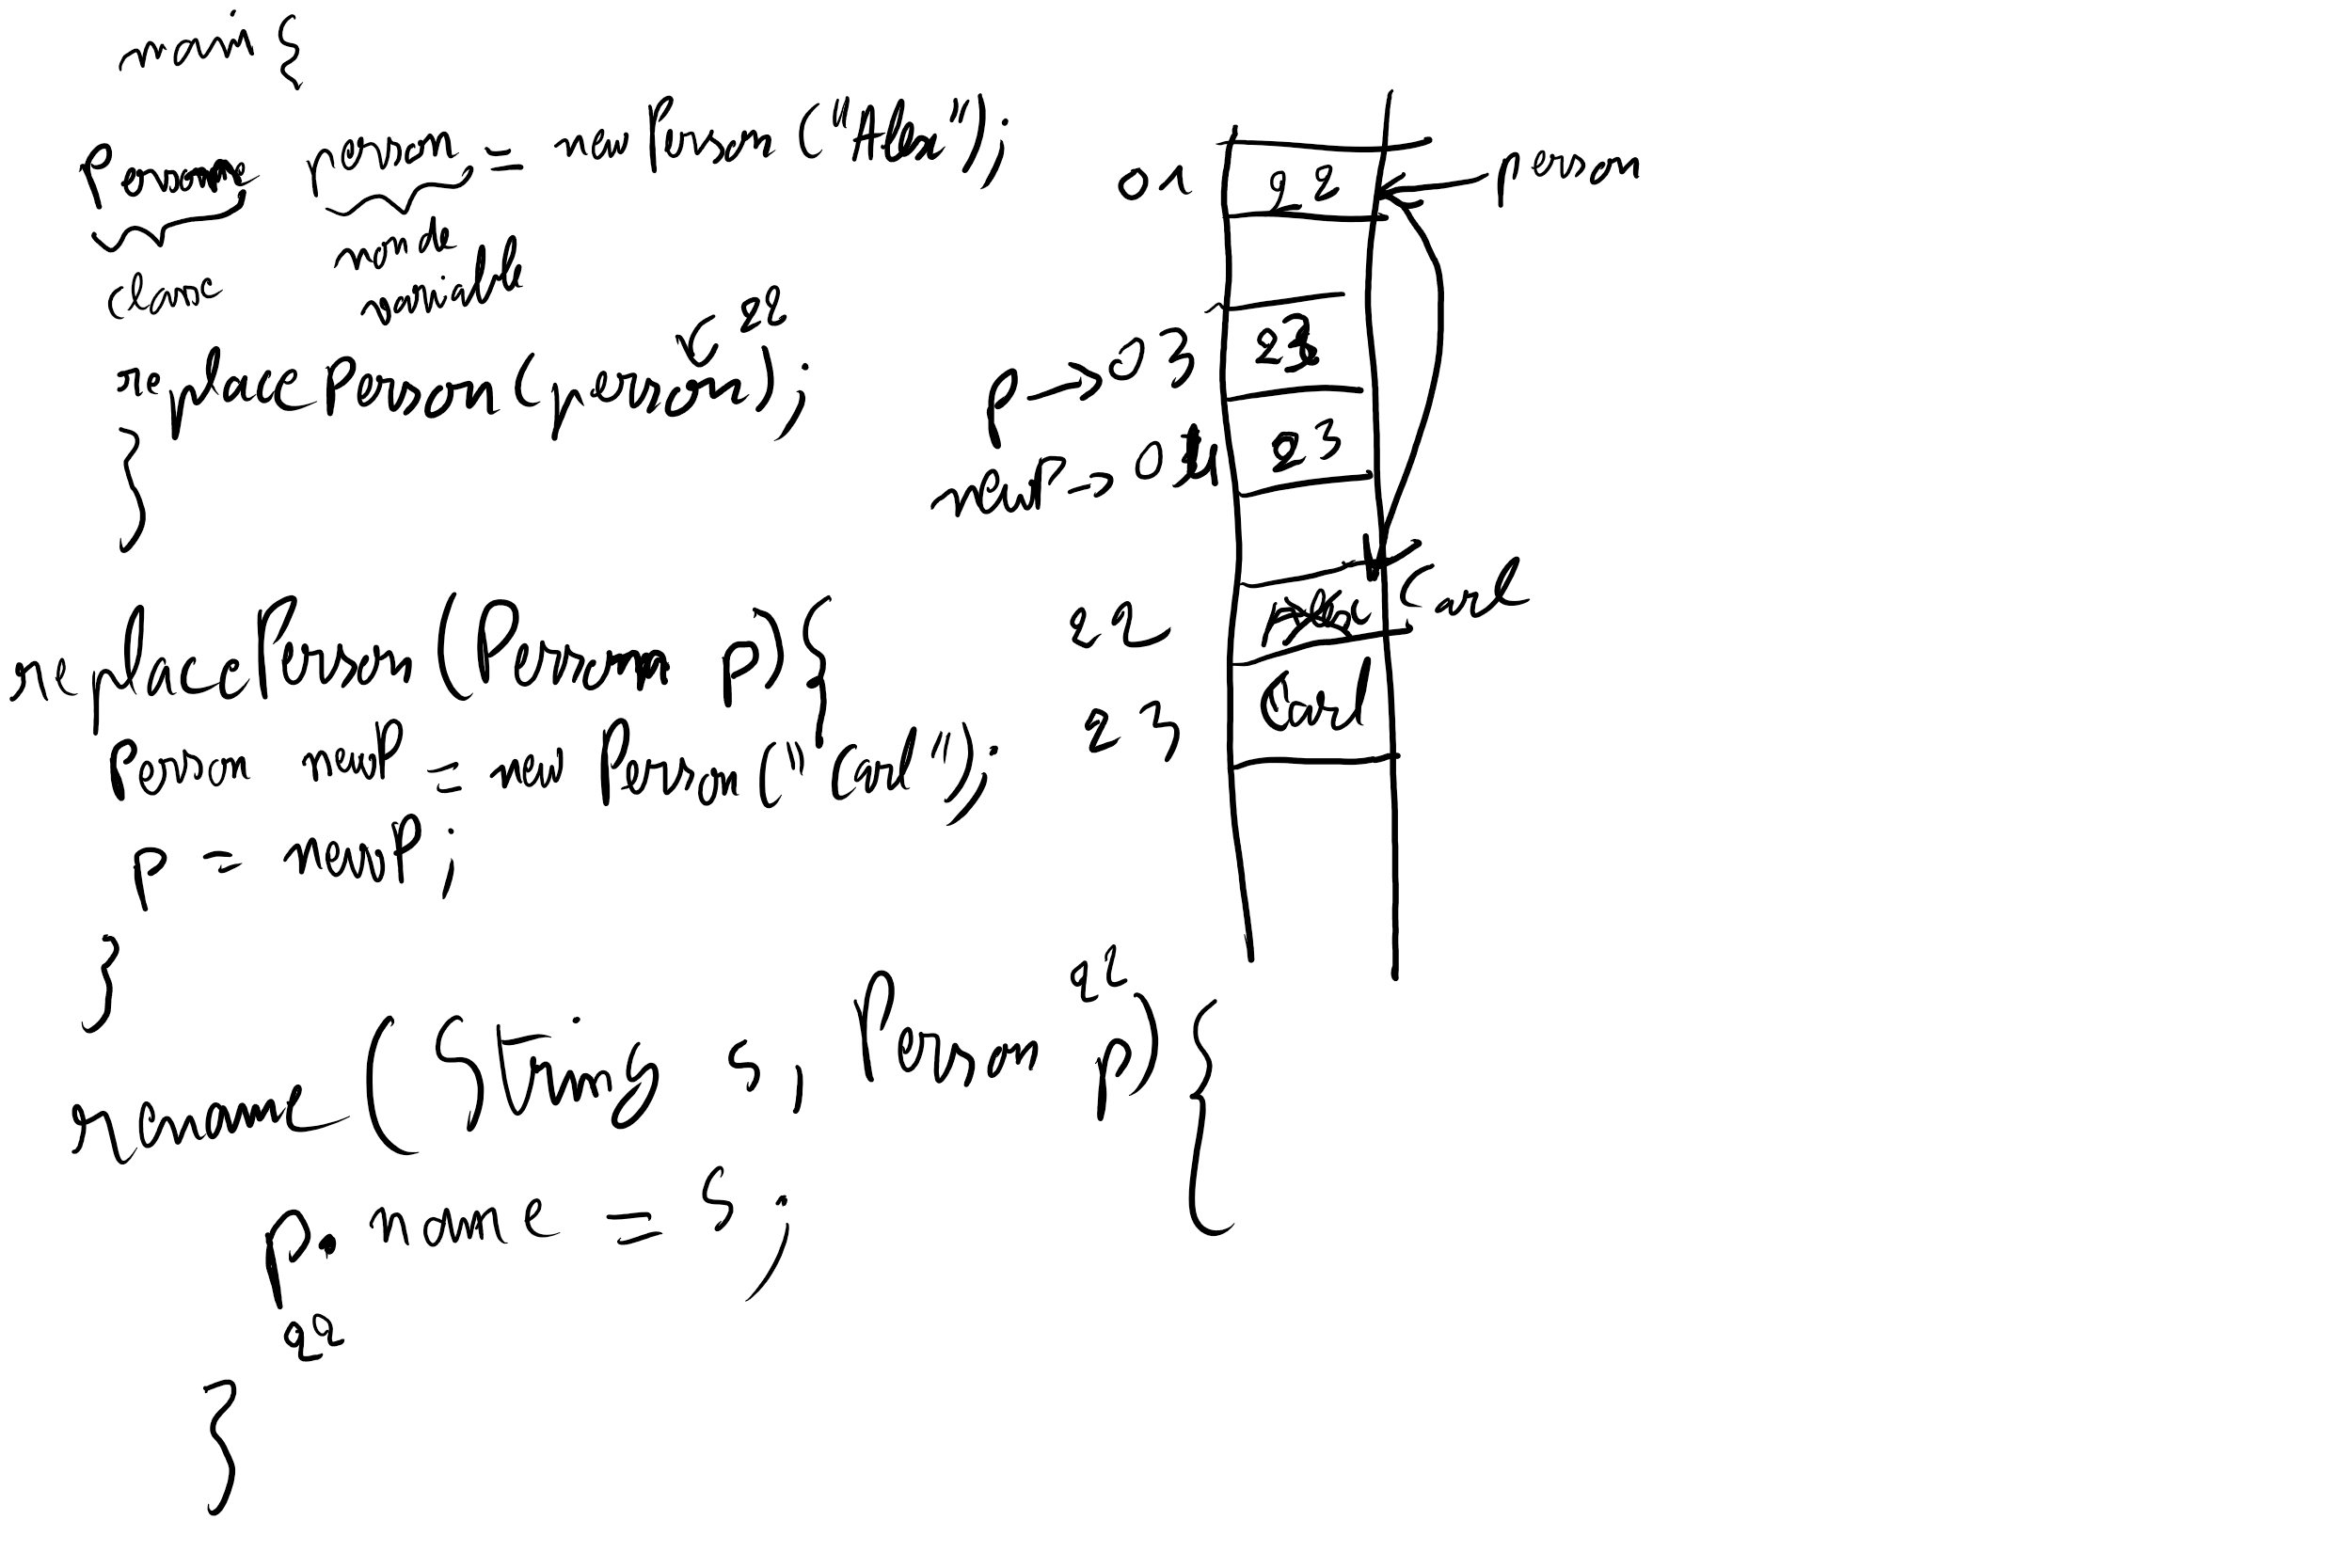 main {
Person person = new Person ("Alex");
class
variable
22
replacePerson (person);
}
replacePerson (Person p) {
Person newP = new Person ("Carl");
p = newP;
}
rename (String s, Person p) {
22
p.name = s;
22
}
01 22 person
p → 03
newP → 04 23
22 Carl
23 Carl